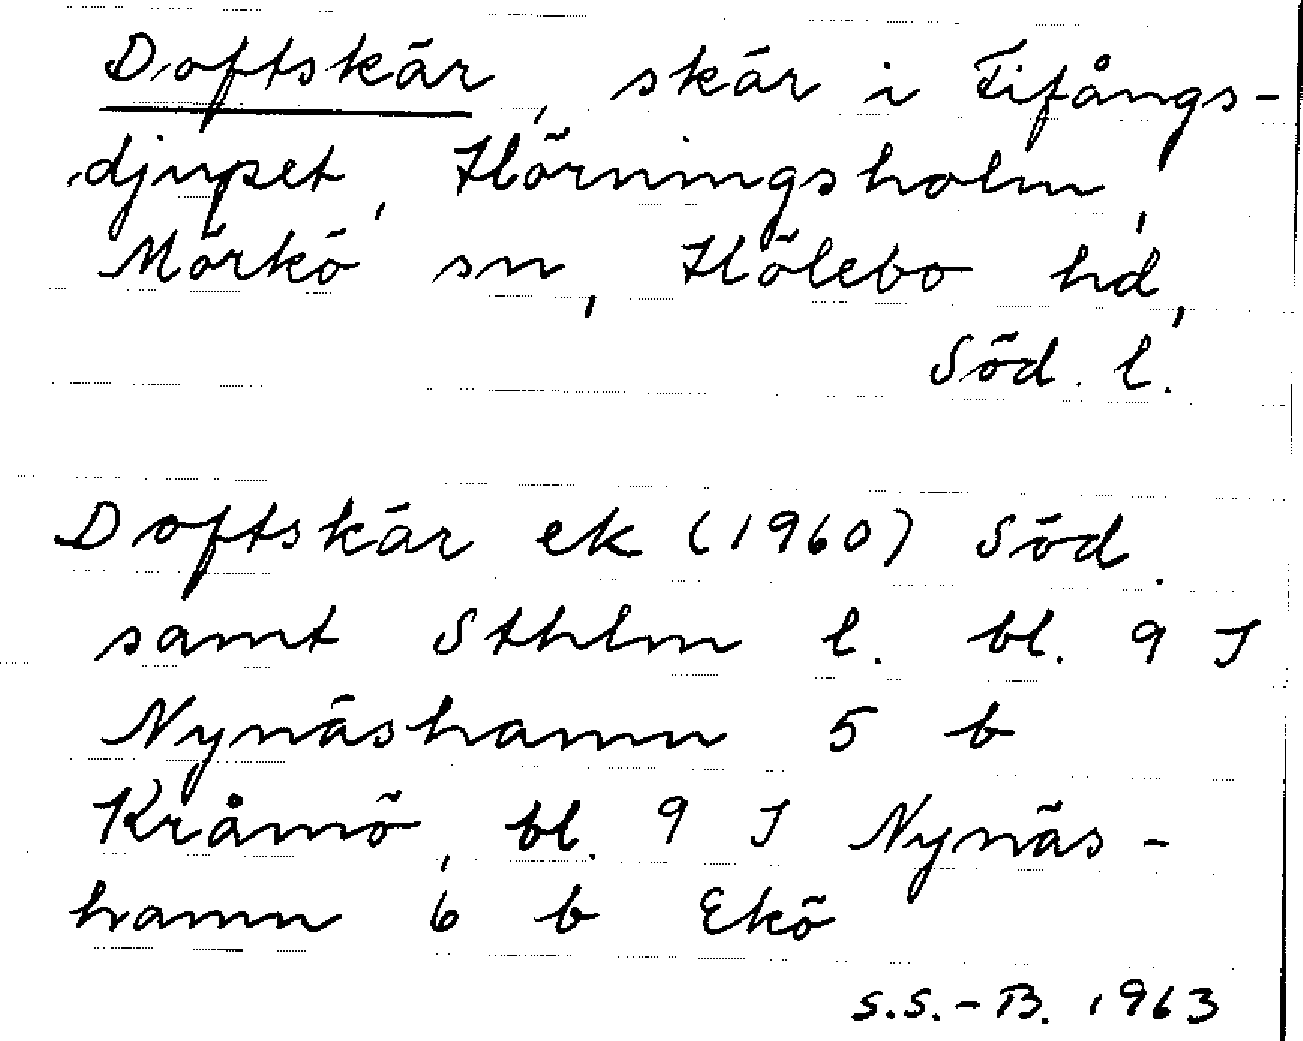 Doftskär, skär i Fifångs-
djupet, Hörningsholm,
Mörkö sn, Hölebo hd,
Söd. l.
Doftskär ek (1960) Söd.
samt Sthlm l. bl. 9 I
Nynäshamn 5 b
Kråmö, bl. 9 I Nynäs-
hamn 6 b Ekö
S.S.-B. 1963